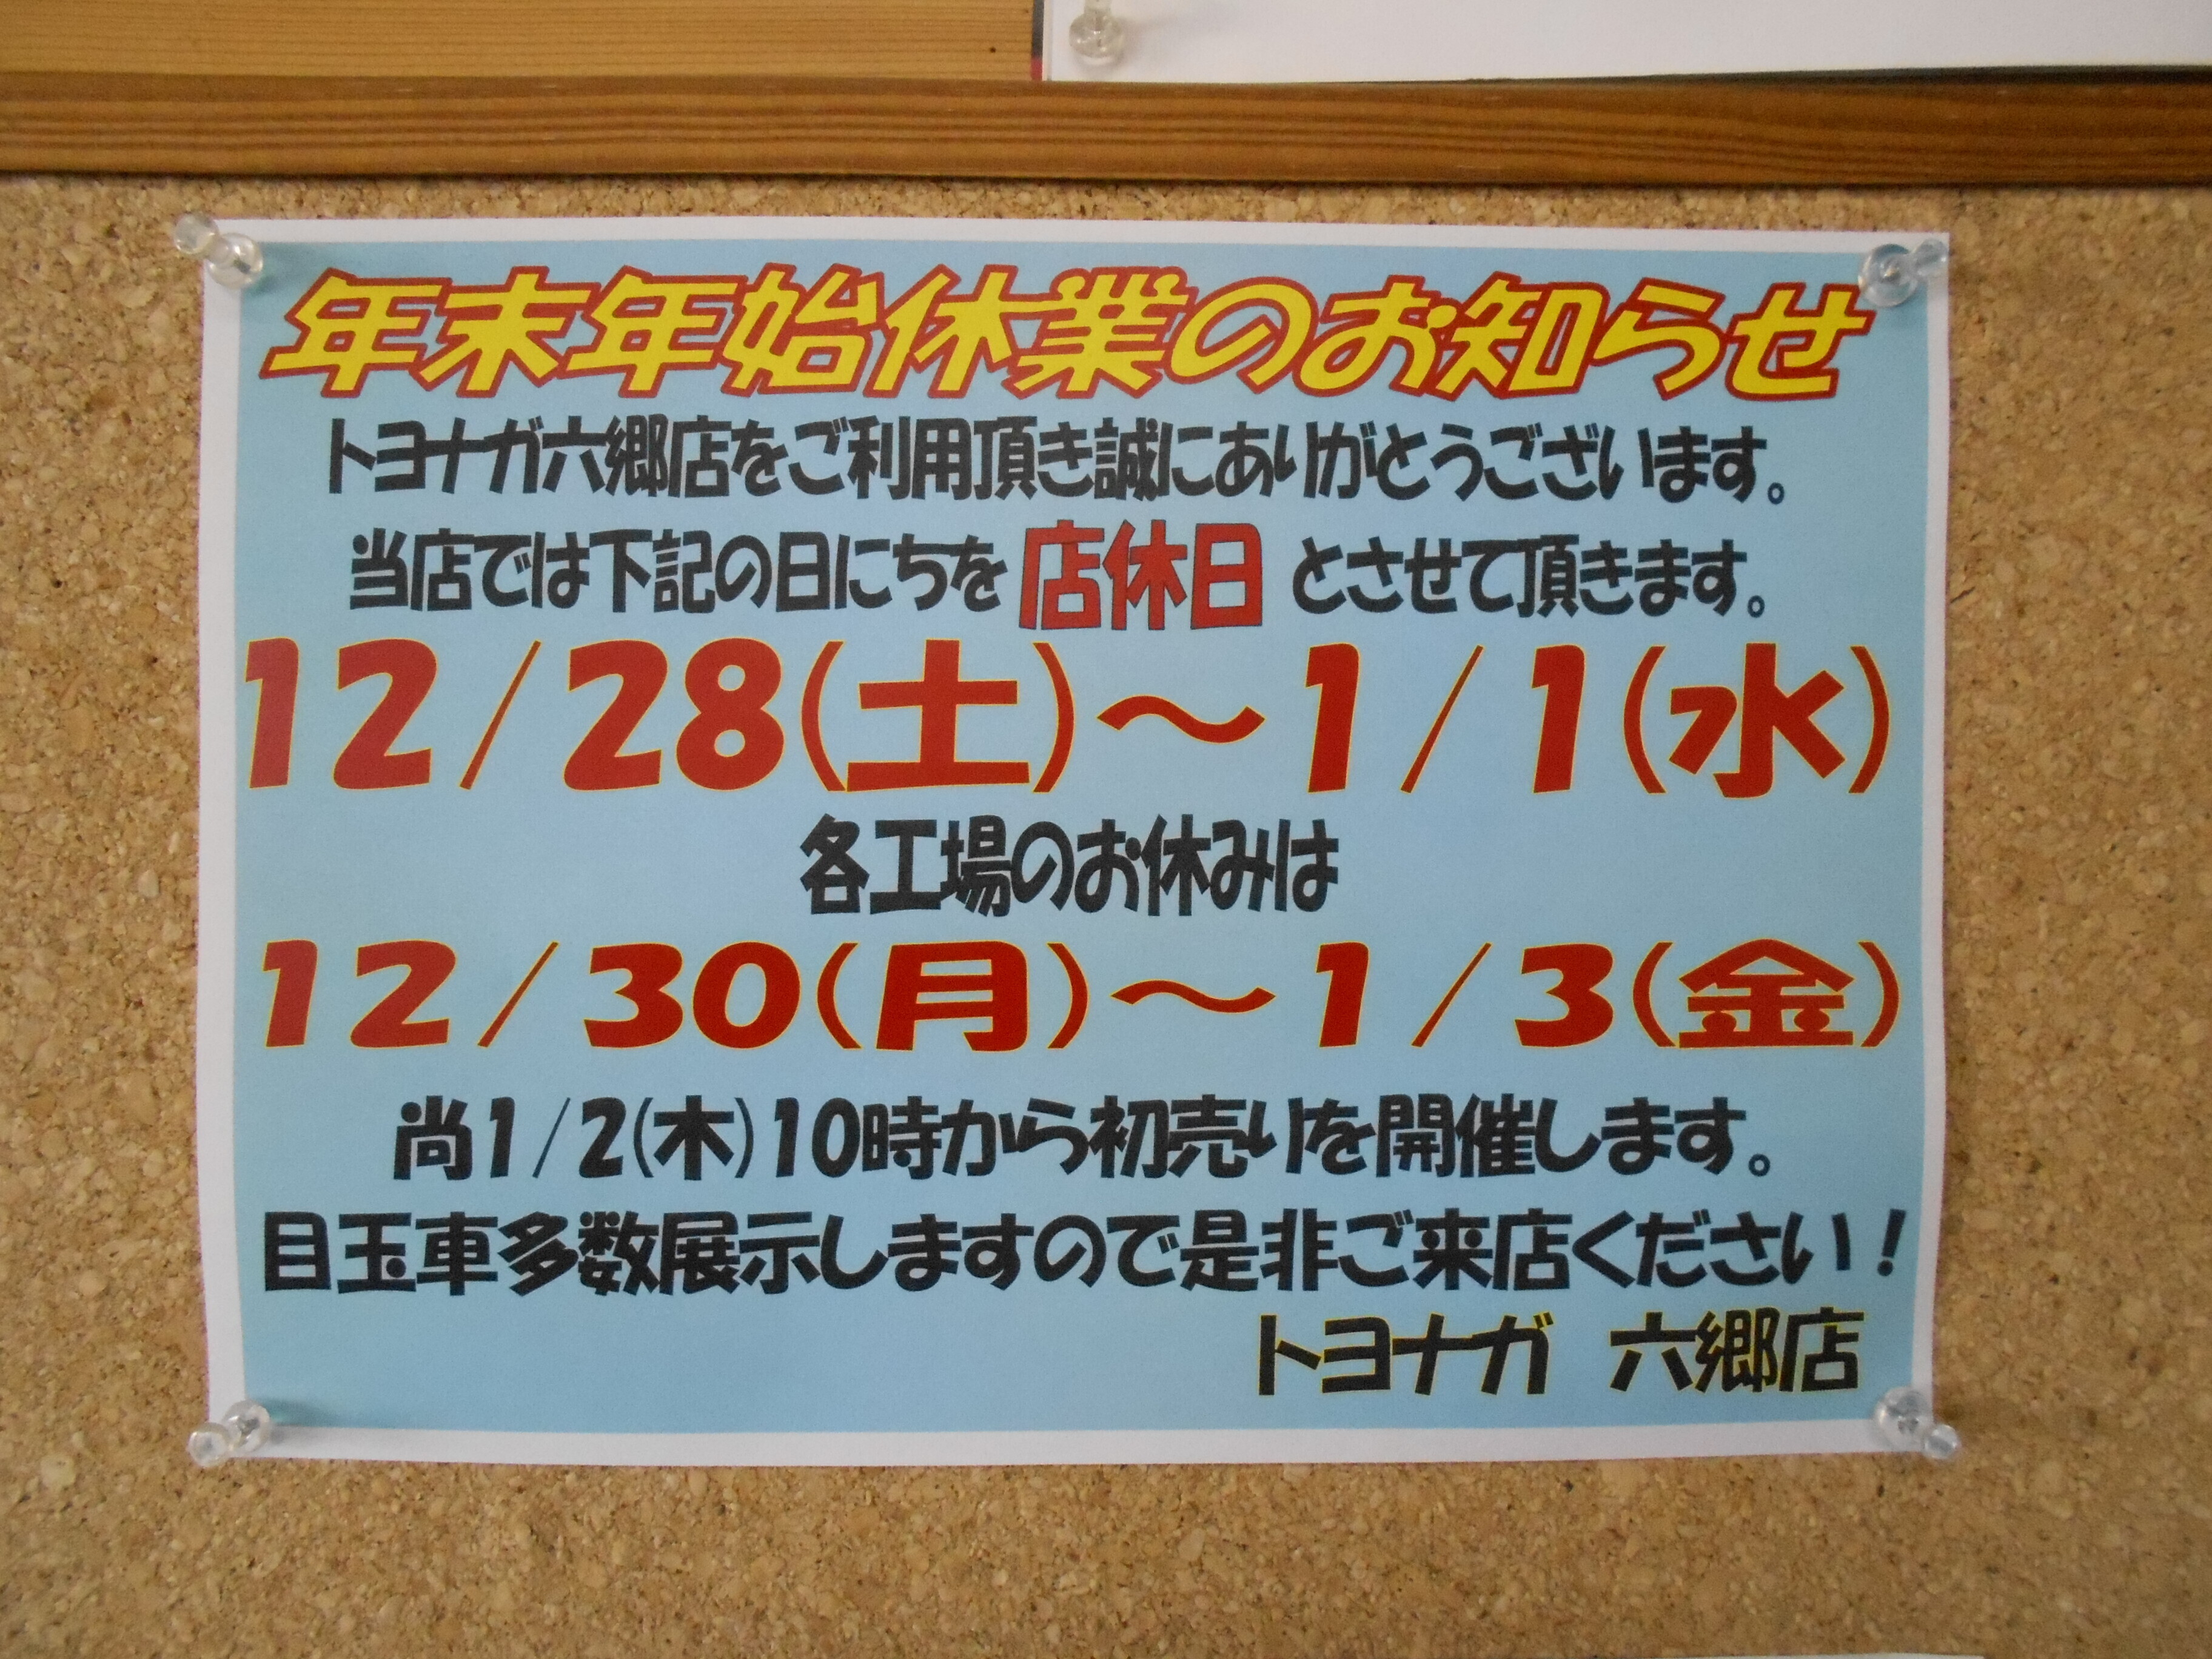 年末年始休業のお知らせ
トヨナガ六郷店をご利用頂き誠にありがとうございます。
当店では下記の日にちを 店休日 とさせて頂きます。
12/28(土)～1/1(水)
各工場のお休みは
12/30(月)～1/3(金)
尚1/2(木)10時から初売りを開催します。
目玉車多数展示しますので是非ご来店ください！
トヨナガ 六郷店